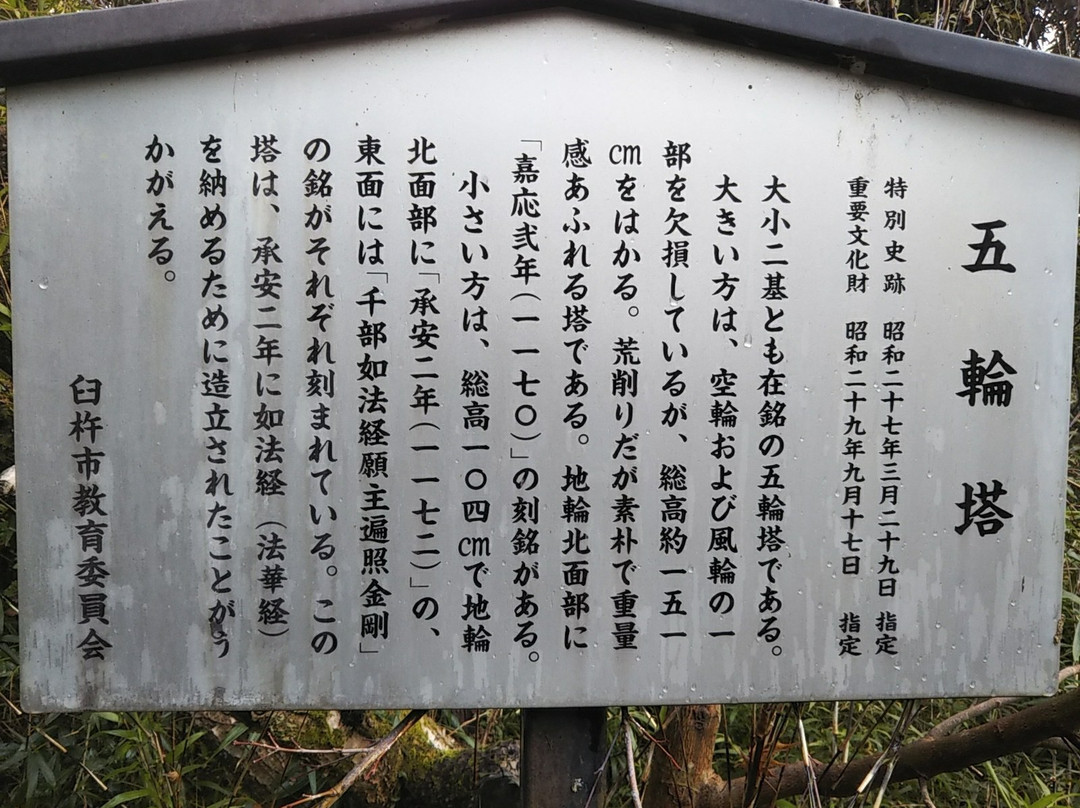 五輪塔
特別史跡 昭和二十七年三月二十九日 指定
重要文化財 昭和二十九年九月十七日 指定
大小二基とも在銘の五輪塔である。
大きい方は、空輪および風輪の一
部を欠損しているが、総高約一五一
cmをはかる。荒削りだが素朴で重量
感あふれる塔である。地輪北面部に
「嘉応弐年(一一七〇)」の刻銘がある。
小さい方は、総高一〇四cmで地輪
北面部に「承安二年(一一七二)」の、
東面には「千部如法経願主遍照金剛」
の銘がそれぞれ刻まれている。この
塔は、承安二年に如法経(法華経)
を納めるために造立されたことがう
かがえる。
臼杵市教育委員会